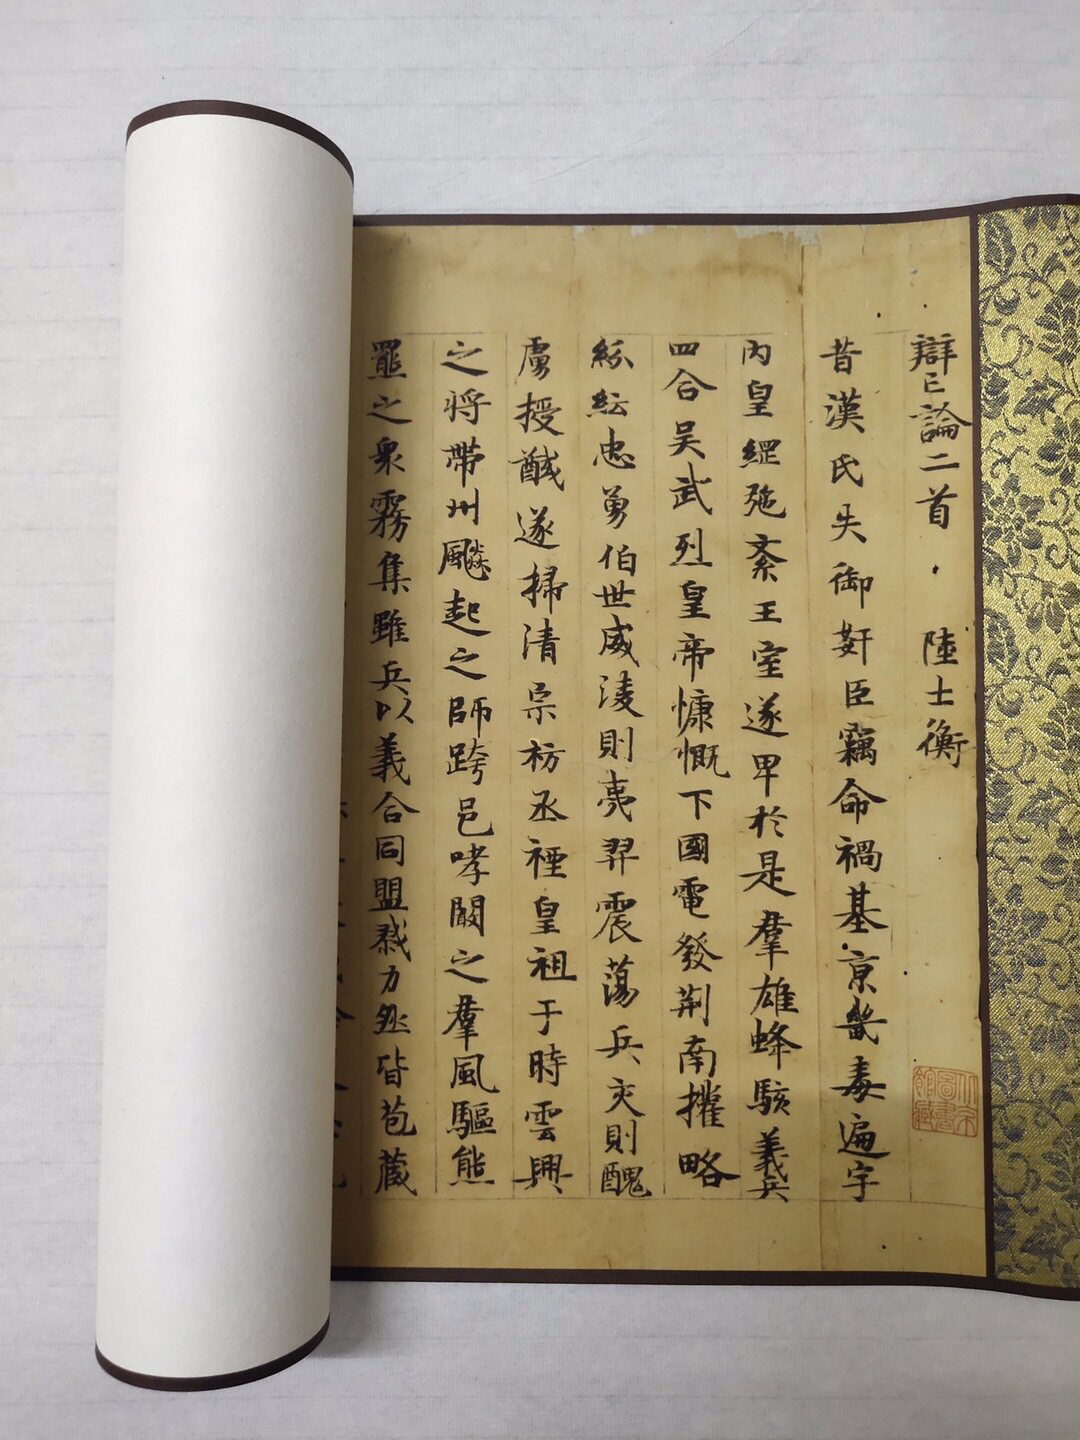 辯亡論二首 陸士衡
昔漢氏失御奸臣竊命禍基京畿毒遍宇
內皇綱弛紊王室遂卑於是羣雄蜂駭義兵
四合吳武烈皇帝慷慨下國電發荊南權略
紛紜忠勇伯世威淩則夷羿震蕩兵交則醜
虜授馘遂掃清宗祊烝禋皇祖于時雲興
之將帶州飈起之師跨邑哮闞之羣風驅熊
羆之衆霧集雖兵以義合同盟戮力然皆苞藏